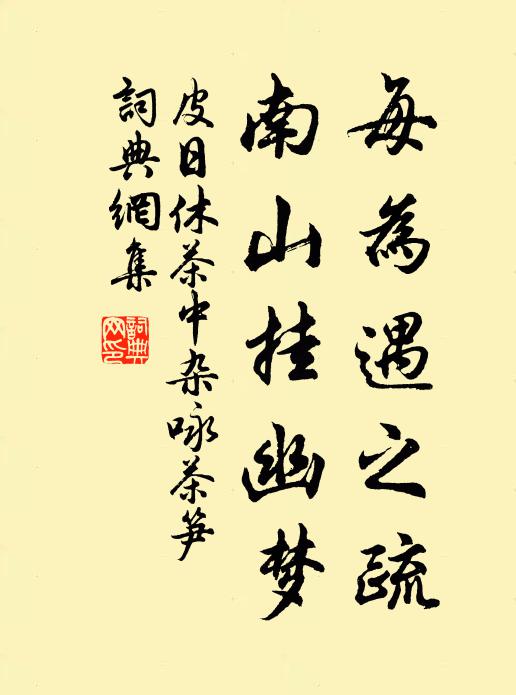 每為遇之疏
南山挂幽梦
皮日休茶中杂咏茶笋
詞典網集
詞典网印